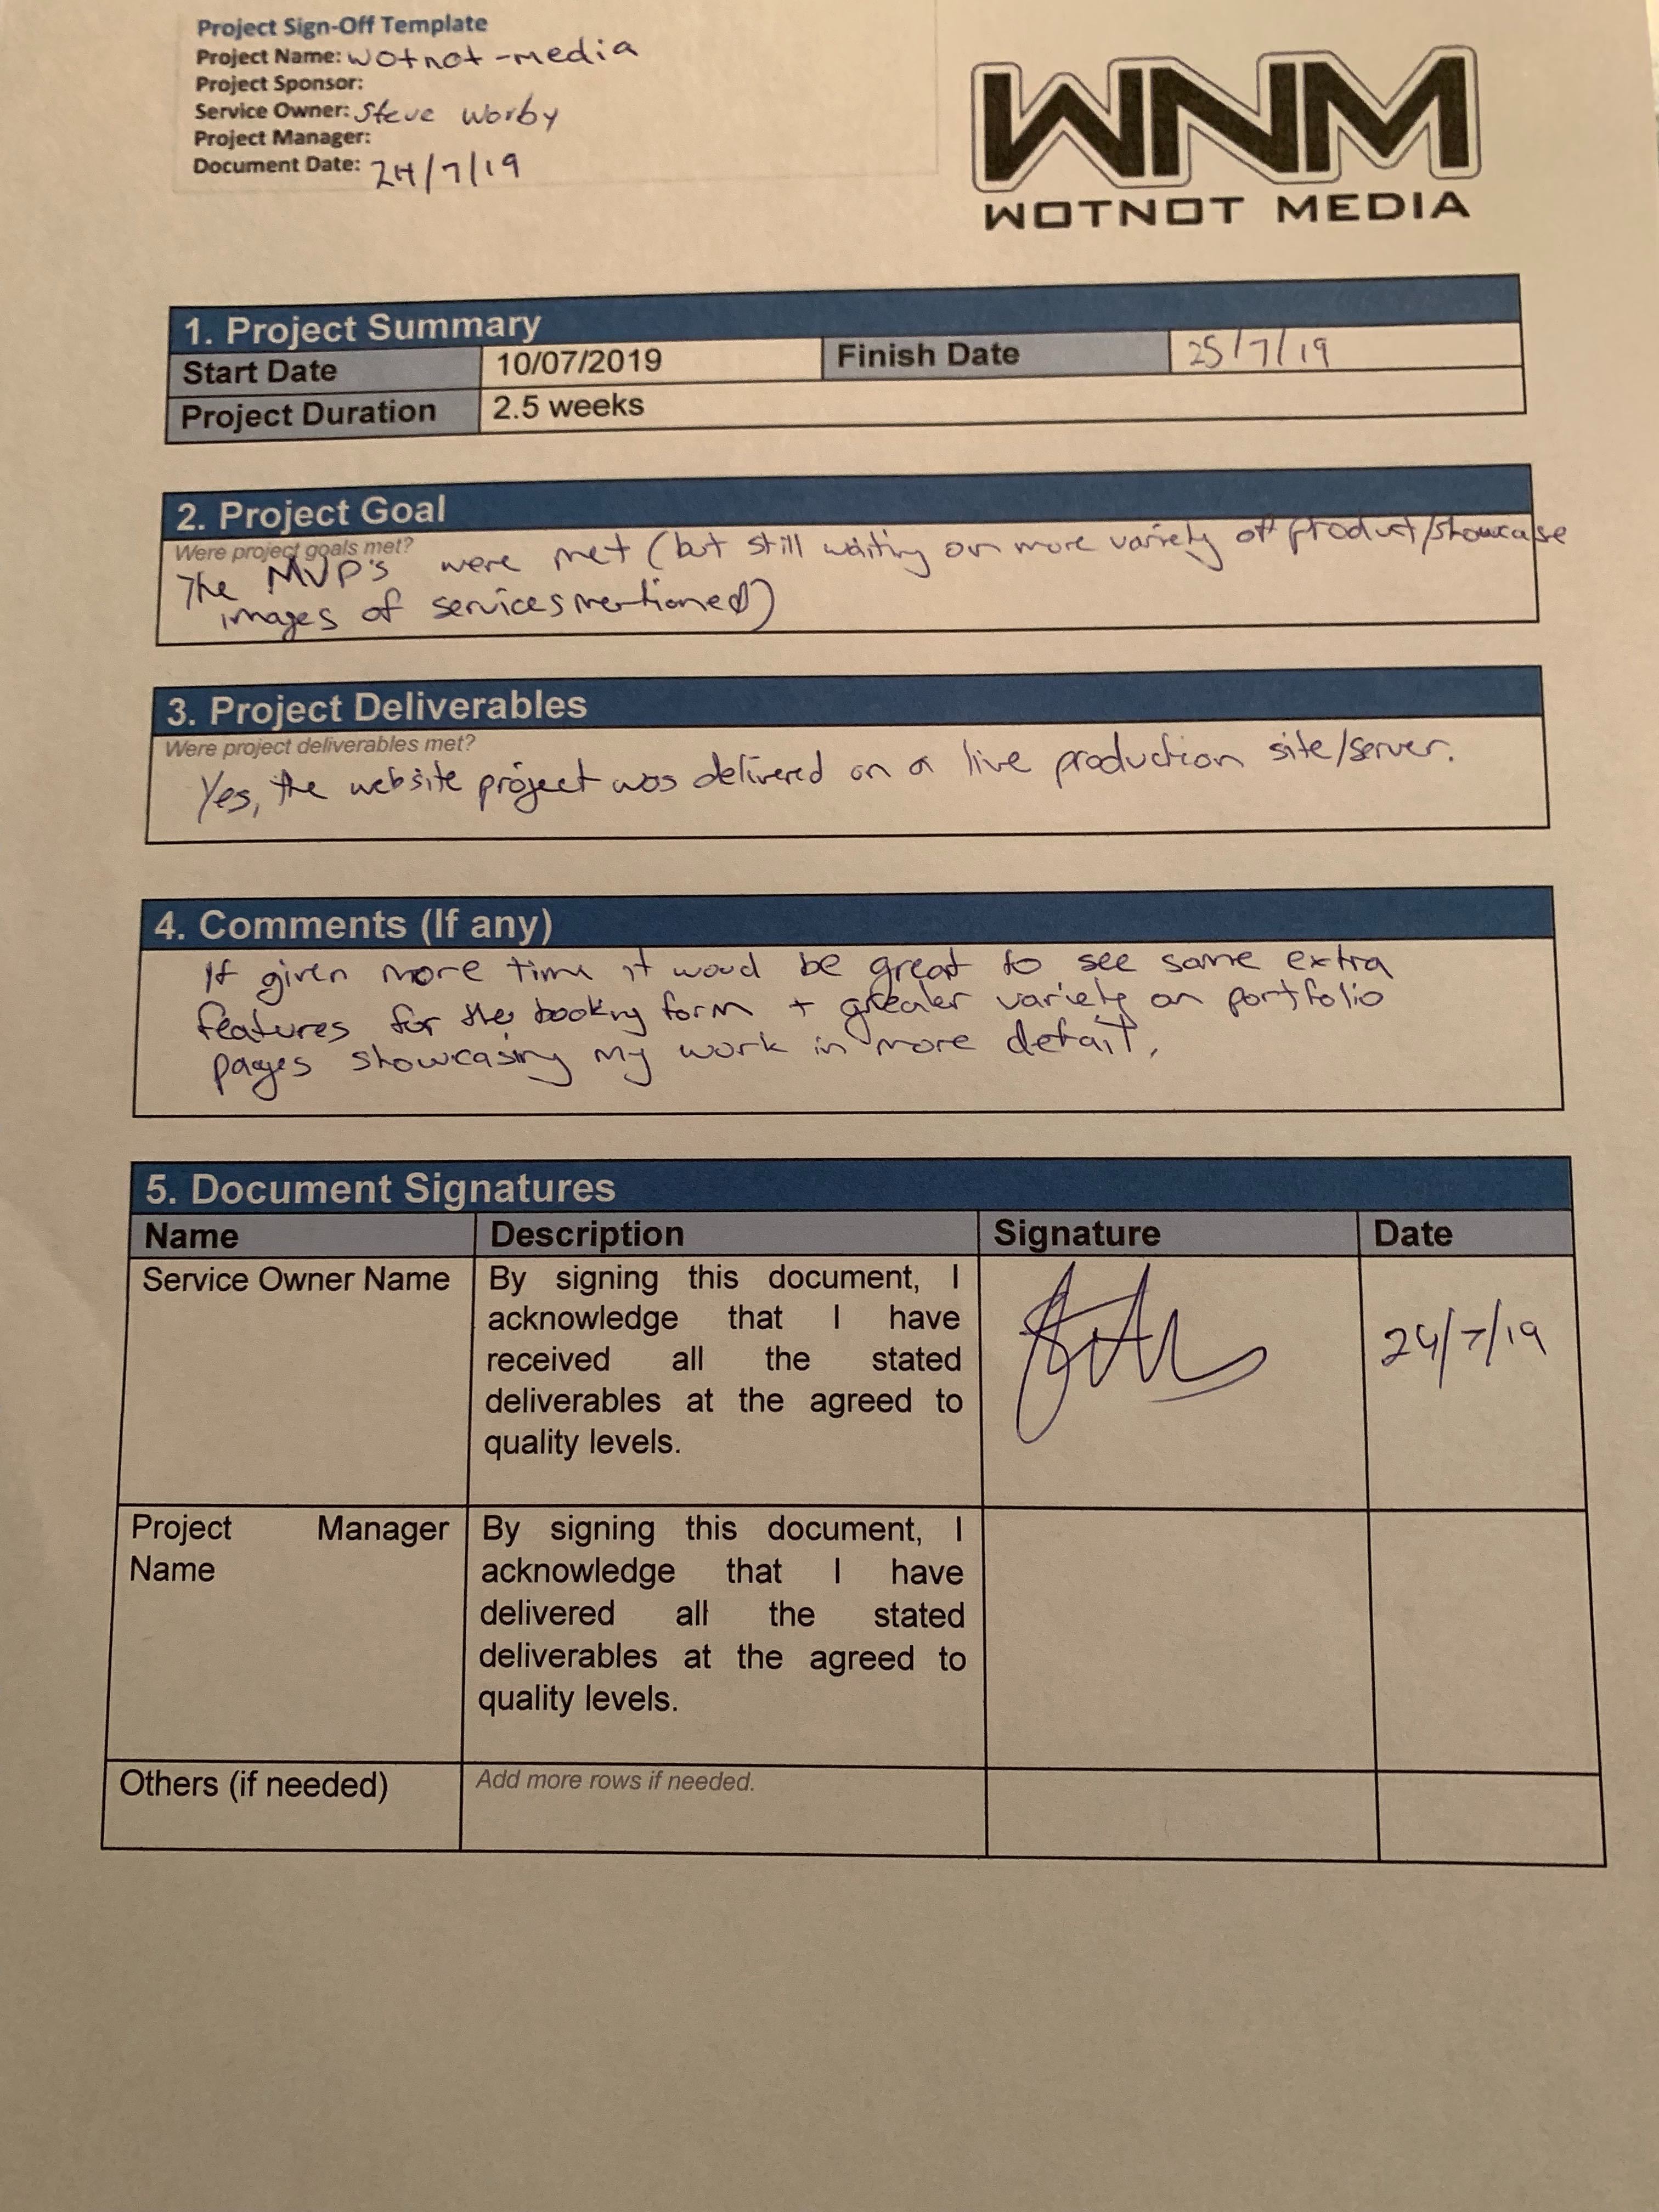 Project Sign-Off Template
Project Name: wotnot-media
Project Sponsor:
Service Owner: Steve Worby
Project Manager:
Document Date: 24/7/19
WNM
WOTNOT MEDIA
1. Project Summary
Start Date 10/07/2019 Finish Date 25/7/19
Project Duration 2.5 weeks
2. Project Goal
Were project goals met?
The MVP's were met (but still waiting on more variety of product/showcase
images of services mentioned)
3. Project Deliverables
Were project deliverables met?
Yes, the website project was delivered on a live production site/server.
4. Comments (If any)
If given more time it woud be great to see some extra
features for the booking form + greater variety on portfolio
pages showcasing my work in more detail.
5. Document Signatures
Name Description Signature Date
Service Owner Name By signing this document, I
acknowledge that I have
received all the stated
deliverables at the agreed to
quality levels.
24/7/19
Project Manager
Name
By signing this document, I
acknowledge that I have
delivered all the stated
deliverables at the agreed to
quality levels.
Others (if needed) Add more rows if needed.